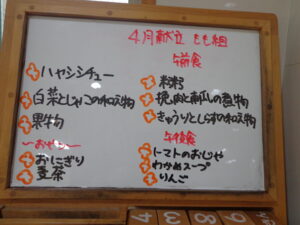 4月献立 もも組
午前食
ハヤシシチュー
白菜としゃこの和え物
果物
〜おやつ〜
おにぎり
麦茶
粉粥
挽肉と刻みの煮物
きゅうりとしらすの和え物
午後食
トマトのおじや
わかめスープ
りんご